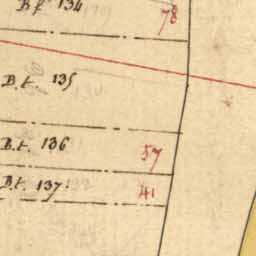 B.t. 134 78
B.t. 135
B.t. 136 57
B.t. 137 41